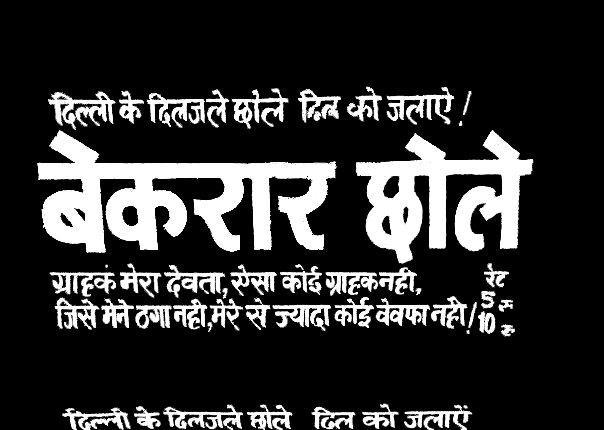 दिल्ली के दिलजले छोले दिल को जलाऐ!
बेकरार छोले
ग्राहक मेरा देवता, ऐसा कोई ग्राहक नही,
जिसे मेने ठगा नही, मेरे से ज्यादा कोई बेवफा नही!
रेट
5 रू
10 रू
दिल्ली के दिलजले छोले दिल को जलाऐं